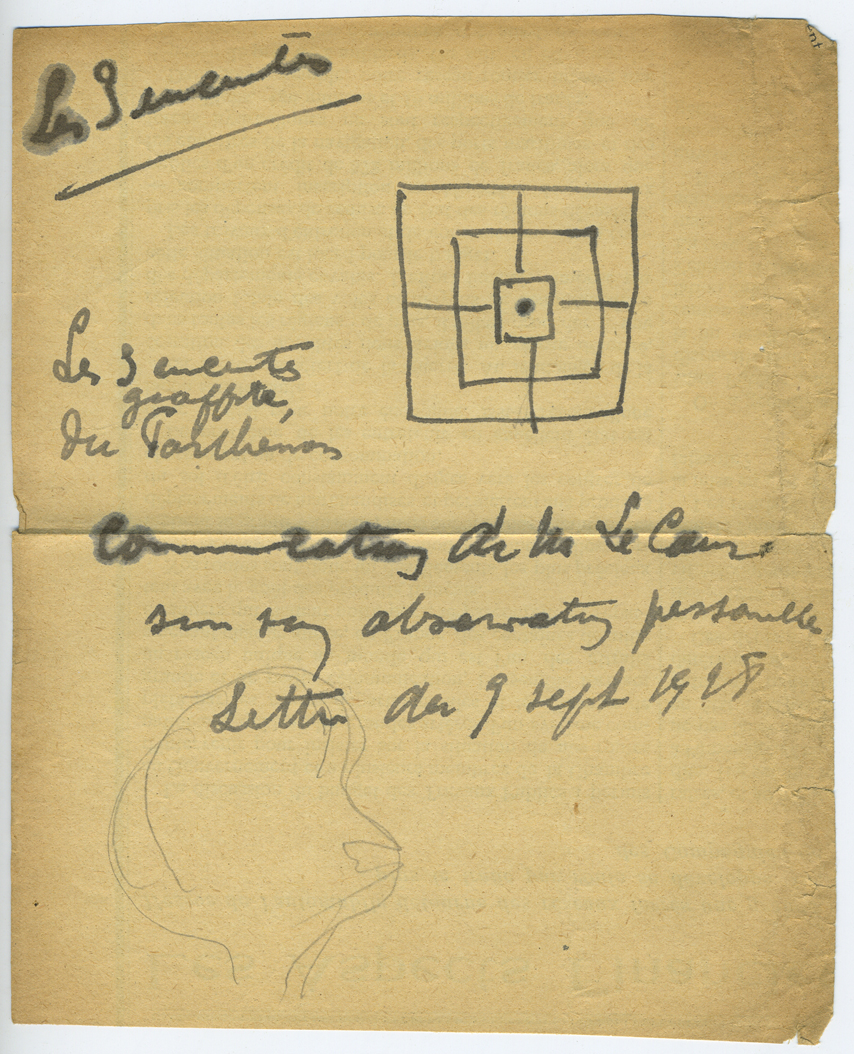 Les 3 enceintes
Les 3 enceintes
graffite,
du Parthénon
Communication de M Le Cour
son observation personnelle
Lettre du 9 sept 1928
ent